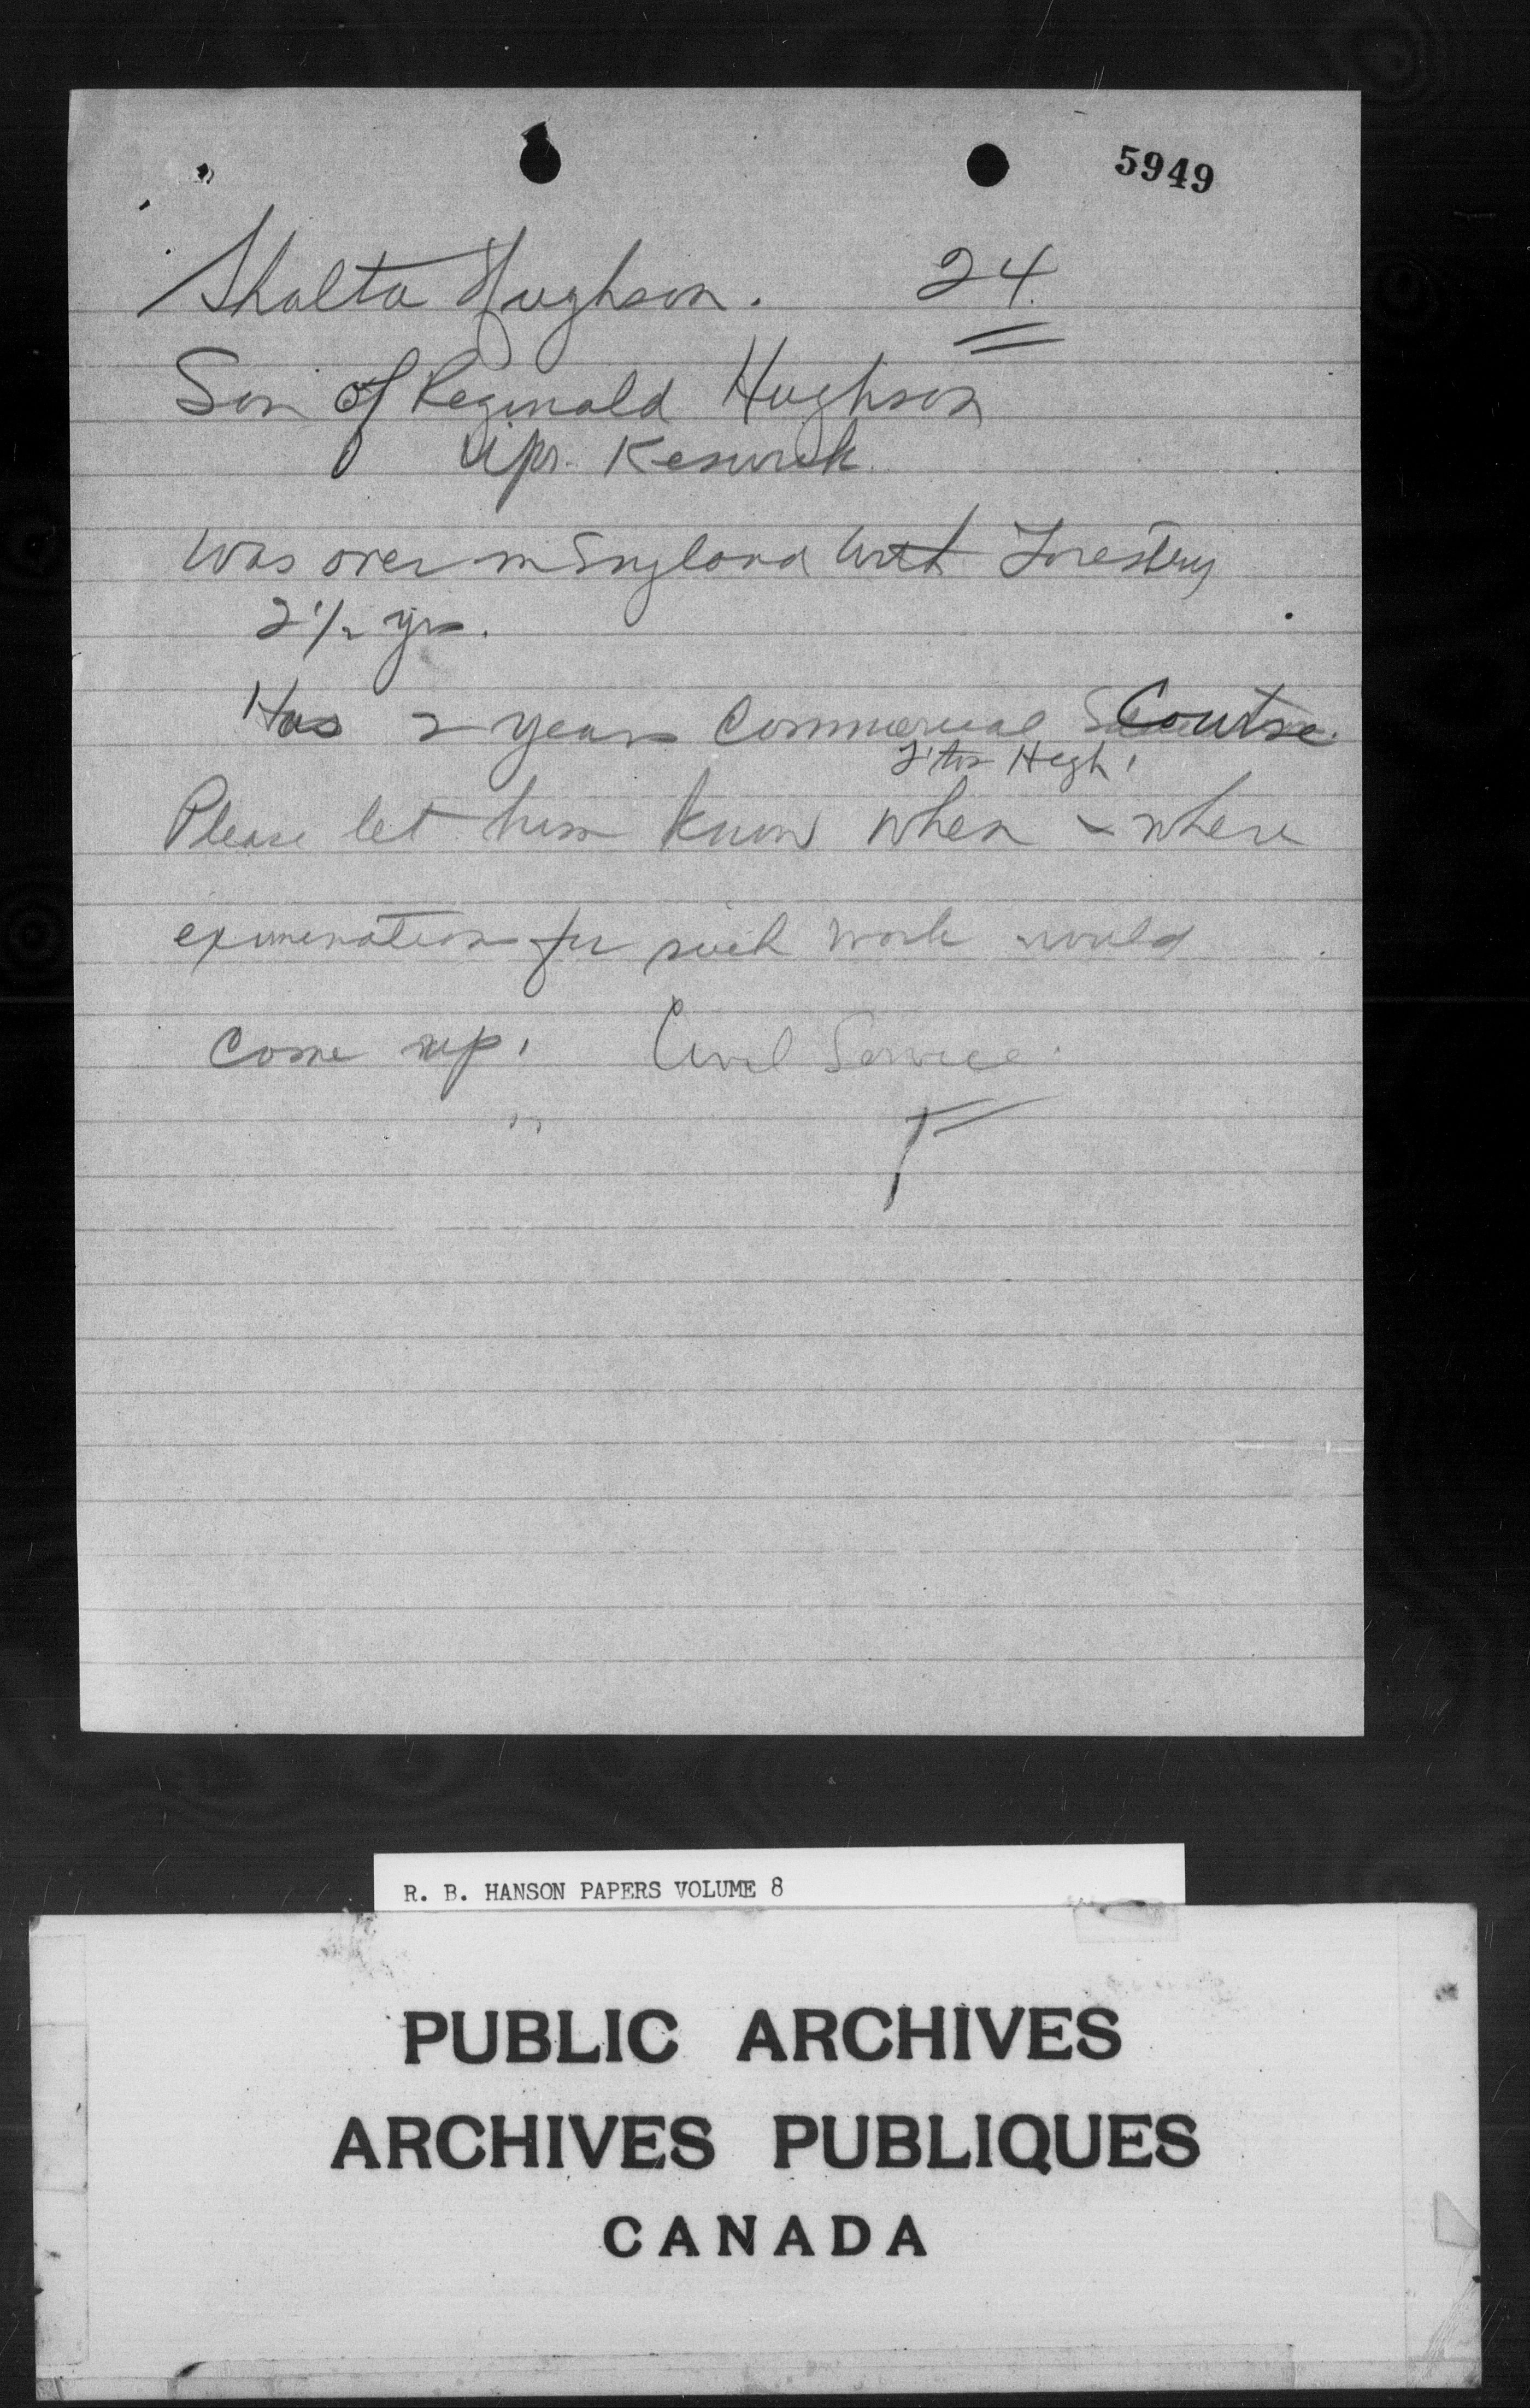 5949
Sholto Hughson. 24.
Son of Reginald Hughson
Upr. Keswick
Was over in England with Forestry
2 1/2 yrs.
Has 2 years Commercial Course.
F'ton High.
Please let him know when & where
examination for such work would
come up. Civil Service.
R. B. HANSON PAPERS VOLUME 8
PUBLIC ARCHIVES
ARCHIVES PUBLIQUES
CANADA